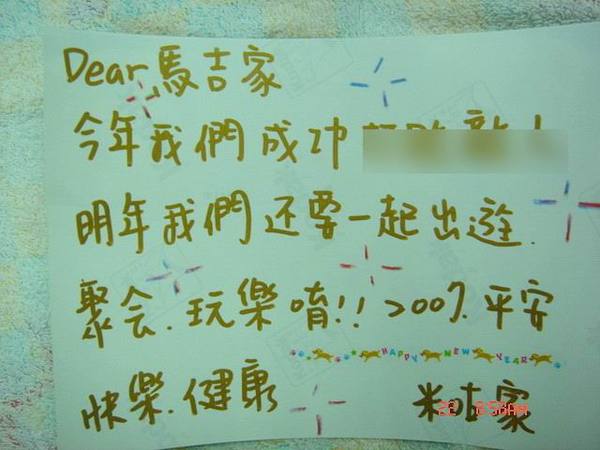 Dear馬吉家
今年我們成功
明年我們还要一起出遊.
聚会.玩樂唷!! 2007.平安
HAPPY NEW YEAR
快樂.健康
家